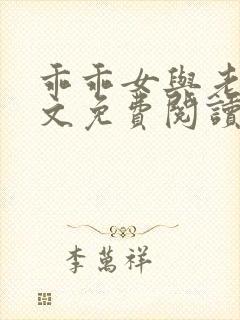 乖乖女與老
文免費閱讀
李萬祥